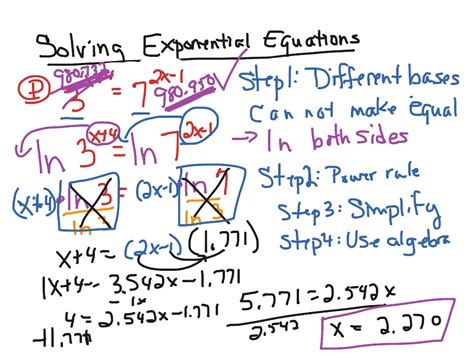 Solving Exponential Equations
P 3 = 7^2x-1 980.950
Step1: Different bases
Can not make equal
→ ln both sides
ln 3^x+4 = ln 7^2x-1
Step2: Power rule
(x+4) ln 3 = (2x-1) ln 7
ln 3
Step3: Simplify
x+4 = (2x-1)(1.771)
Step4: Use algebra
1x+4 = 3.542x-1.771
-1x
4 = 2.542x-1.771
+1.771
5.771 = 2.542x
2.542
x = 2.270